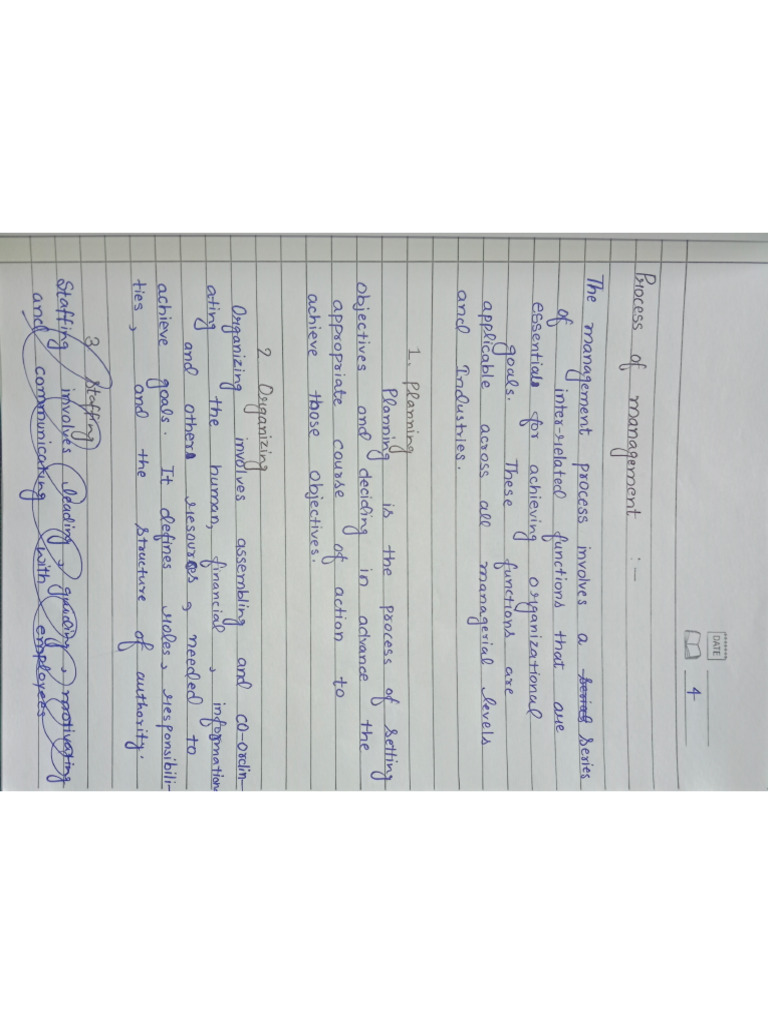 DATE
4
Process of management :-
The management process involves a series series
of inter-related functions that are
essential for achieving organizational
goals. These functions are
applicable across all managerial levels
and Industries.
1. Planning
Planning is the process of setting
objectives and deciding in advance the
appropriate course of action to
achieve those objectives.
2 Organizing
Organizing involves assembling and co-ordin-
ating the human, financial, information
and other resources, needed to
achieve goals. It defines roles, responsibili-
ties, and the structure of authority.
3. Staffing
Staffing involves leading, guiding, motivating
and communicating with employees